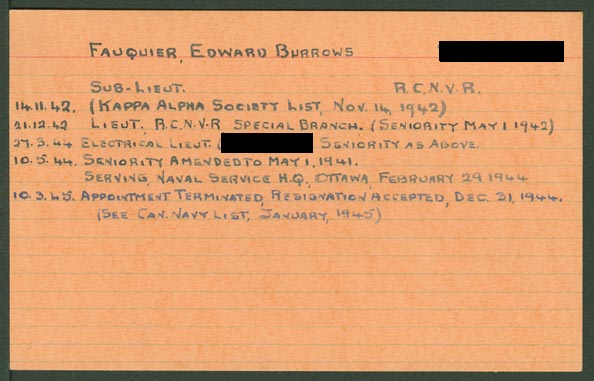 FAUQUIER, EDWARD BURROWS
SUB-LIEUT. R.C.N.V.R.
14.11.42. (KAPPA ALPHA SOCIETY LIST, NOV. 14, 1942)
21.12.42 LIEUT, R.C.N.V.R SPECIAL BRANCH. (SENIORITY MAY 1 1942)
27.3.44 ELECTRICAL LIEUT. ( SENIORITY AS ABOVE.
10.5.44. SENIORITY AMENDED TO MAY 1, 1941.
SERVING, NAVAL SERVICE H.Q., OTTAWA, FEBRUARY 29 1944
10.3.45. APPOINTMENT TERMINATED, RESIGNATION ACCEPTED, DEC. 31, 1944.
(SEE CAN. NAVY LIST, JANUARY, 1945)